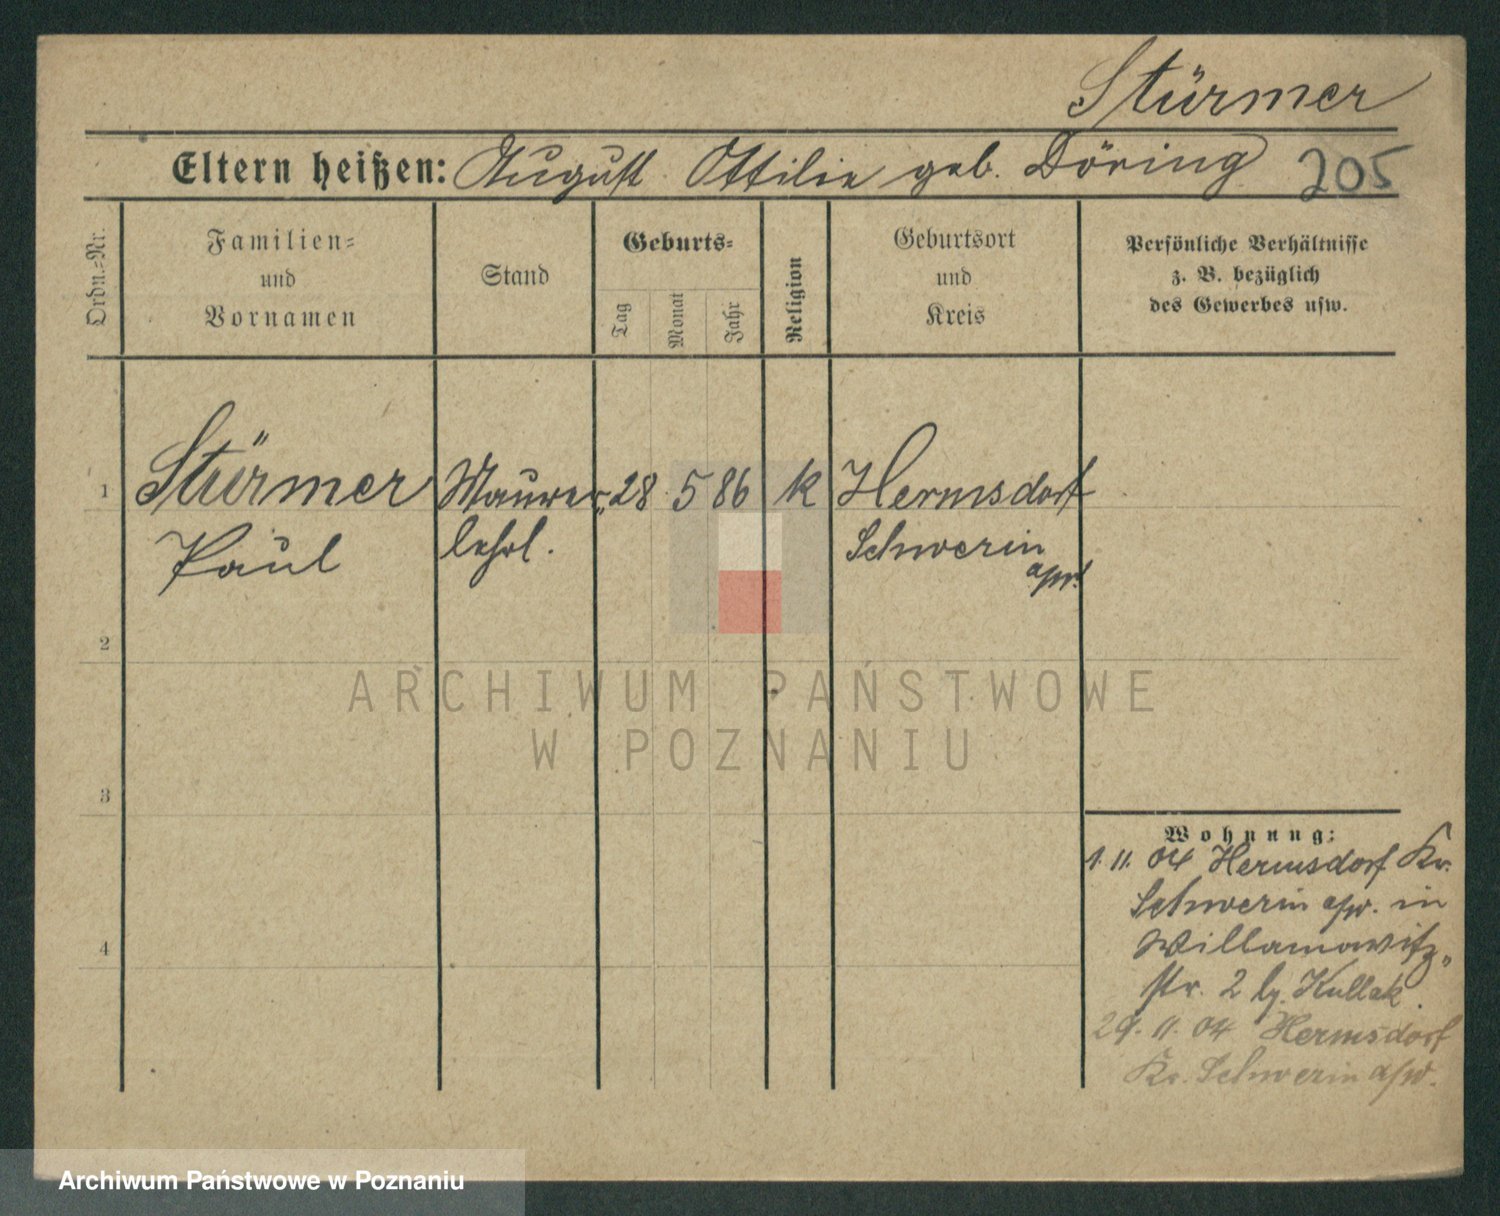 Stürmer
Eltern heißen: August Ottilie geb. Döring 205
Ordn.-Nr.
Familien-
und
Vornamen
Stand
Geburts-
Tag
Monat
Jahr
Religion
Geburtsort
und
Kreis
Persönliche Verhältnisse
z. B. bezüglich
des Gewerbes usw.
1 Stürmer Maurer„ 28 5 86 k Hermsdorf
Paul lehrl. Schwerin
a/w.
2
ARCHIWUM PAŃSTWOWE
W POZNANIU
3
Wohnung:
1. 11. 04 Hermsdorf Kr.
Schwerin a/w. in
4 Willamowitz„
str. 2 b/. Kullak.
29. 11. 04 Hermsdorf
Kr. Schwerin a/w.
Archiwum Państwowe w Poznaniu